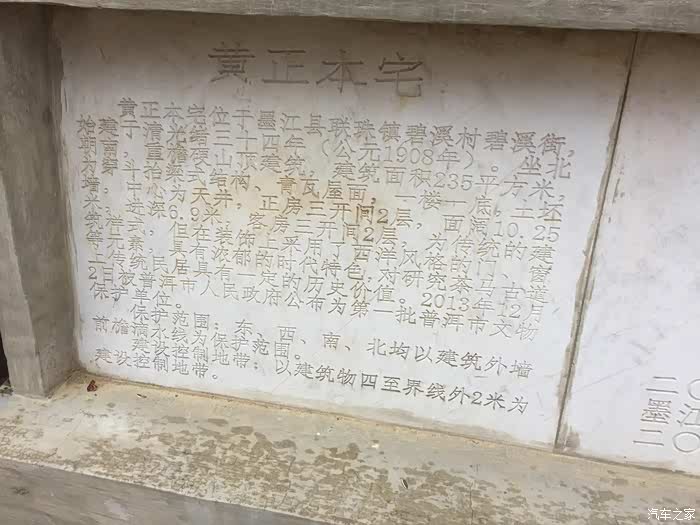 黄正本宅
黄正本宅位于墨江县联珠镇碧溪村碧溪街,
始建于清光绪三十四年(公元1908年)。坐北
南,重檐硬山顶,建筑面积235平方米,
斗式结构、青瓦屋面,一楼一底,土坯
墙 中心为天井 房三开间2层,面阔10.25
米 深6.9米 客房三开间2层,为传统的建
筑 在装饰上采用了西洋风格的门、窗
等元 但具 的时代特色 研究茶马古道
上传统民居具有一定的历史价值。2013年12月
2日被普洱市人民政府公布为第一批普洱市文物
保护单位。
保护范围:东、西、南、北均以建筑外墙
前檐滴水线为保护范围。
建设控制地带:以建筑物四至界线外2米为
建设控制地带。
二〇
墨
二〇
汽车之家